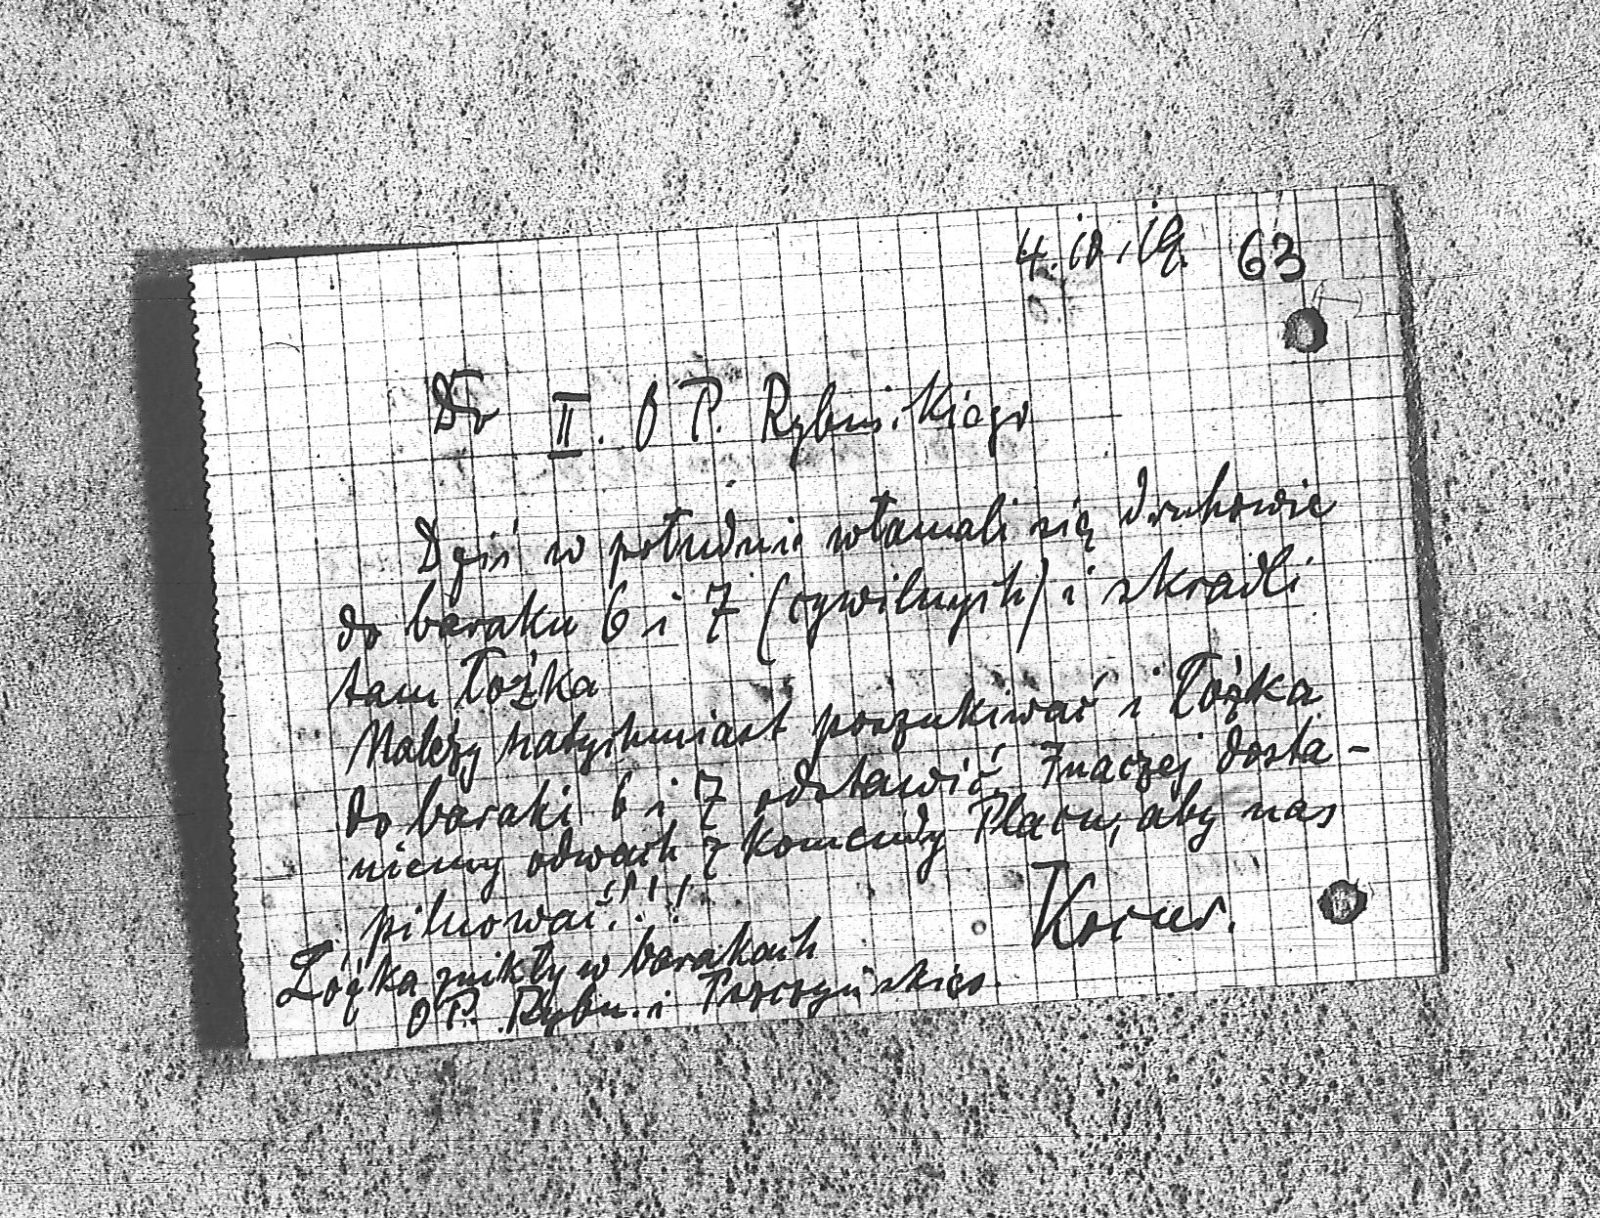 4.10.19. 63
Do II. O P. Rybnickiego
Dziś w południe włamali się druhowie
do baraku 6 i 7 (cywilnych) i skradli
tam łóżka
Należy natychmiast poszukiwać i łóżka
do baraki 6 i 7 odstawić. Inaczej dosta-
niemy odwach z komendy Placu, aby nas
pilnować!!!!
Łóżka znikły w barakach
O P. Rybn. i Pszczyńskiego.